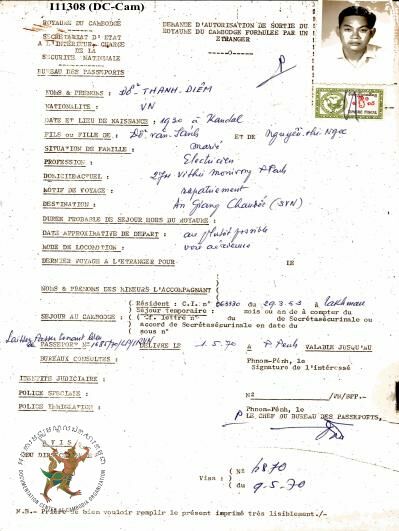 I11308 (DC-Cam)
ROYAUME DU CAMBODGE
SECRETARIAT D'ETAT
A L'INTÉRIEUR, CHARGE
DE LA
SECURITE NATIONALE
BUREAU DES PASSEPORTS
DEMANDE D'AUTORISATION DE SORTIE DU
ROYAUME DU CAMBODGE FORMULEE PAR UN
ETRANGER
NOMS & PRENOMS : Đỗ-THANH-DIÊM
NATIONALITE : VN
DATE ET LIEU DE NAISSANCE : 1930 à Kandal
FILS ou FILLE DE : Đỗ-văn- ET DE Nguyễn-thi Ngọc
SITUATION DE FAMILLE : Marié
PROFESSION : Electricien
DOMICILE ACTUEL : Vithei Monivong PPenh
MOTIF DE VOYAGE : rapatriement
DESTINATION : An Giang (SVN)
DUREE PROBABLE DE SEJOUR HORS DU ROYAUME :
DATE APPROXIMATIVE DE DEPART : au plutôt possible
MODE DE LOCOMOTION : voie aérienne
DERNIER VOYAGE A L'ETRANGER POUR LE
NOMS & PRENOMS DES MINEURS L'ACCOMPAGNANT
SEJOUR AU CAMBODGE :
( Résident : C.I. n° du 29.3.63 à
( Séjour temporaire : mois ou an à compter du
( Cf. lettre n° du de Secrétasécurinale ou
( accord de Secrétasécurinale en date du
( sous n°
Laissez Passer tenant lieu
de PASSEPORT N° DELIVRE LE 1.5.70 A P Penh VALABLE JUSQU'AU
BUREAUX CONSULTES :
Phnom-Pénh, le
Signature de l'intéressé
IDENTITE JUDICIAIRE :
POLICE SPECIALE :
POLICE IMMIGRATION :
N2 /PN/BPP.-
Phnom-Pénh, le
P LE CHEF DU BUREAU DES PASSEPORTS,
AVIS
DU DIRECTEUR
DOCUMENTATION CENTER OF CAMBODIA ORGANIZATION
Visa : ( N2 4870
( du 9.5.70
N.B.- Prière de bien vouloir remplir le présent imprimé très lisiblement./-